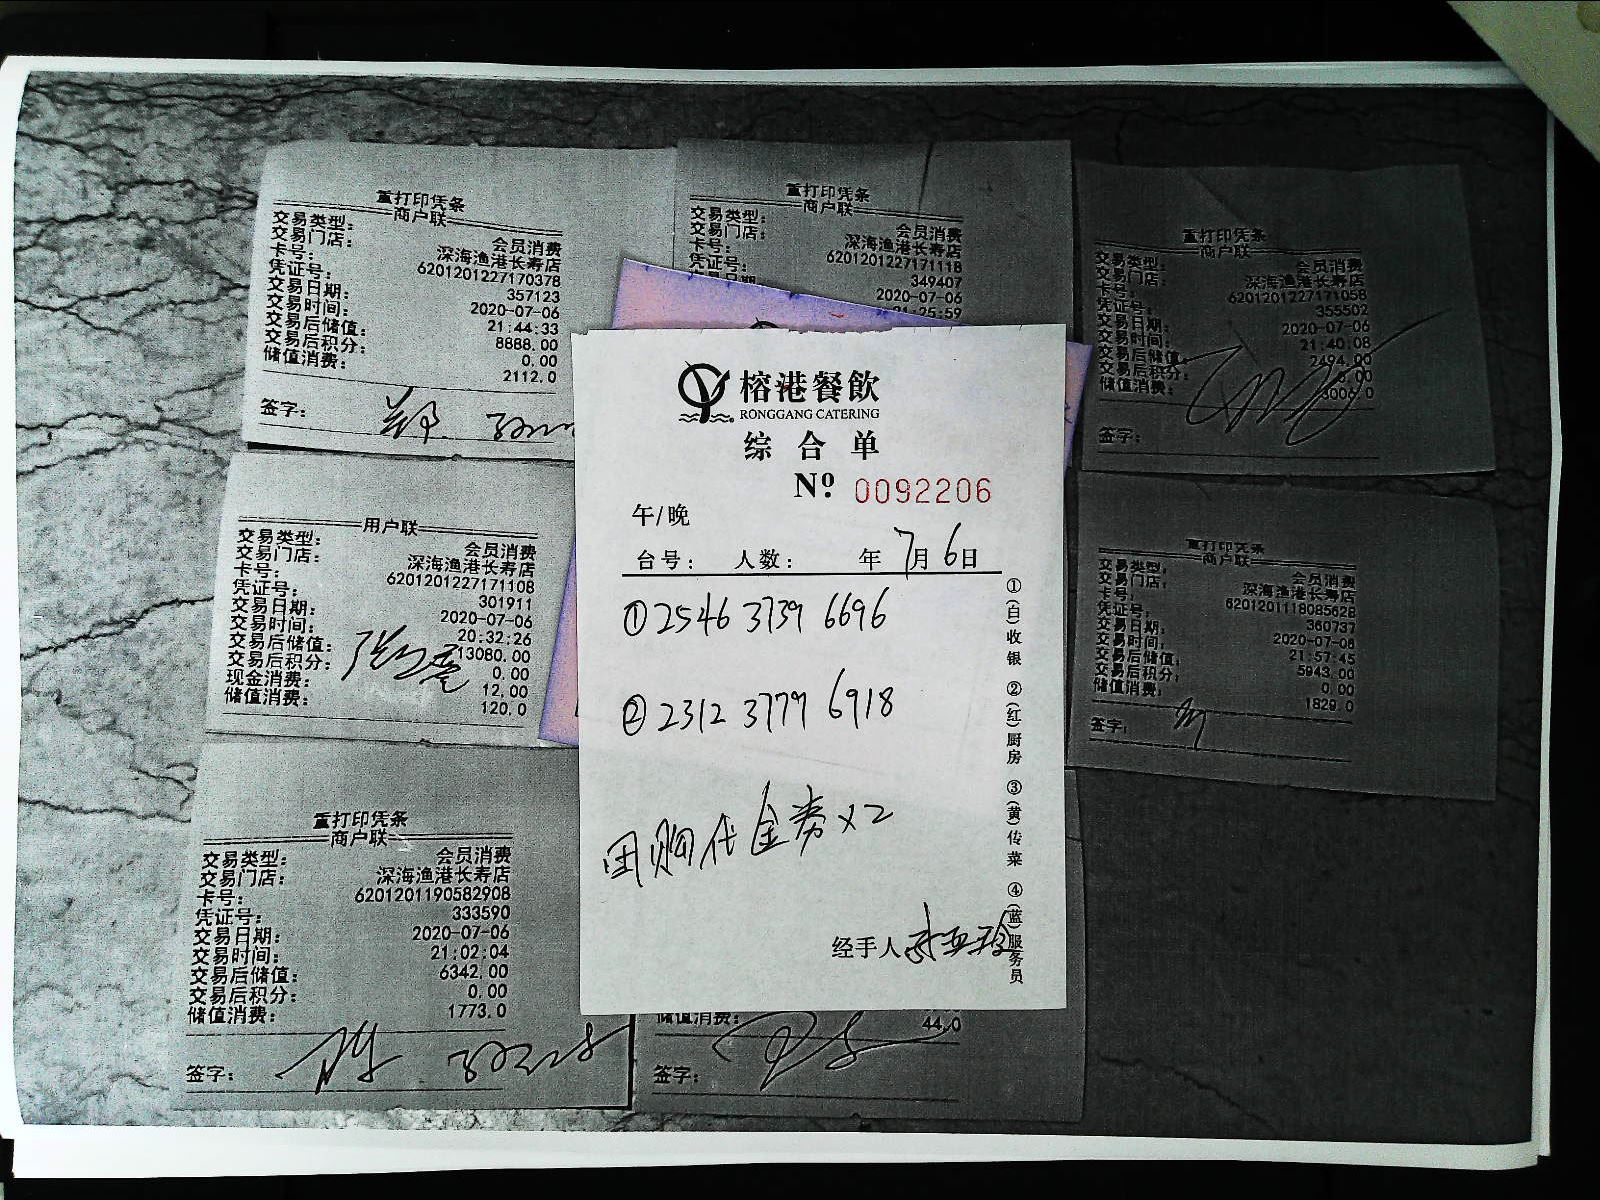 重打印凭条
商户联
交易类型: 会员消费
交易门店: 深海渔港长寿店
卡号: 6201201227170378
凭证号: 357123
交易日期: 2020-07-06
交易时间: 21:44:33
交易后储值: 8888.00
交易后积分: 0.00
储值消费: 2112.0
签字:
重打印凭条
商户联
交易类型: 会员消费
交易门店: 深海渔港长寿店
卡号: 6201201227171118
凭证号: 349407
2020-07-06
21:25:59
重打印凭条
商户联
交易类型: 会员消费
交易门店: 深海渔港长寿店
卡号: 6201201227171058
凭证号: 355502
交易日期: 2020-07-06
交易时间: 21:40:08
交易后储值: 2494.00
交易后积分: 0.00
储值消费: 3006.0
签字:
用户联
交易类型: 会员消费
交易门店: 深海渔港长寿店
卡号: 6201201227171108
凭证号: 301911
交易日期: 2020-07-06
交易时间: 20:32:26
交易后储值: 13080.00
交易后积分: 0.00
现金消费: 12.00
储值消费: 120.0
榕港餐飲
RONGGANG CATERING
综合单
Nº 0092206
午/晚
台号: 人数: 年 7月6日
①2546 3739 6696
②2312 3779 6918
团购代金券x2
经手人
①(白)收银 ②(红)厨房 ③(黄)传菜 ④(蓝)服务员
重打印凭条
商户联
交易类型: 会员消费
交易门店: 深海渔港长寿店
卡号: 6201201118085628
凭证号: 360737
交易日期: 2020-07-06
交易时间: 21:57:45
交易后储值: 5943.00
交易后积分: 0.00
储值消费: 1829.0
签字:
重打印凭条
商户联
交易类型: 会员消费
交易门店: 深海渔港长寿店
卡号: 6201201190582908
凭证号: 333590
交易日期: 2020-07-06
交易时间: 21:02:04
交易后储值: 6342.00
交易后积分: 0.00
储值消费: 1773.0
签字:
储值消费: 44.0
签字: